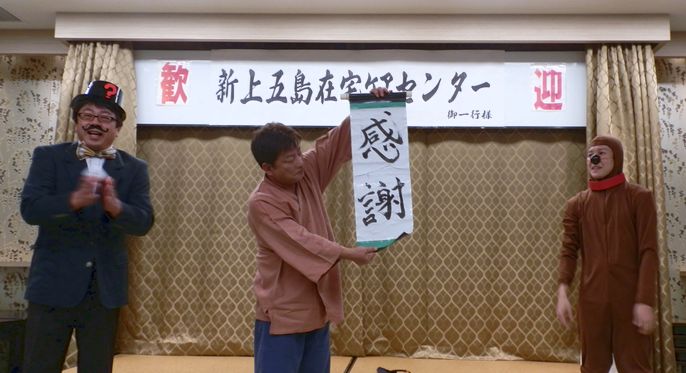 歓 新上五島在宅ケアセンター 迎
御一行様
感謝
?